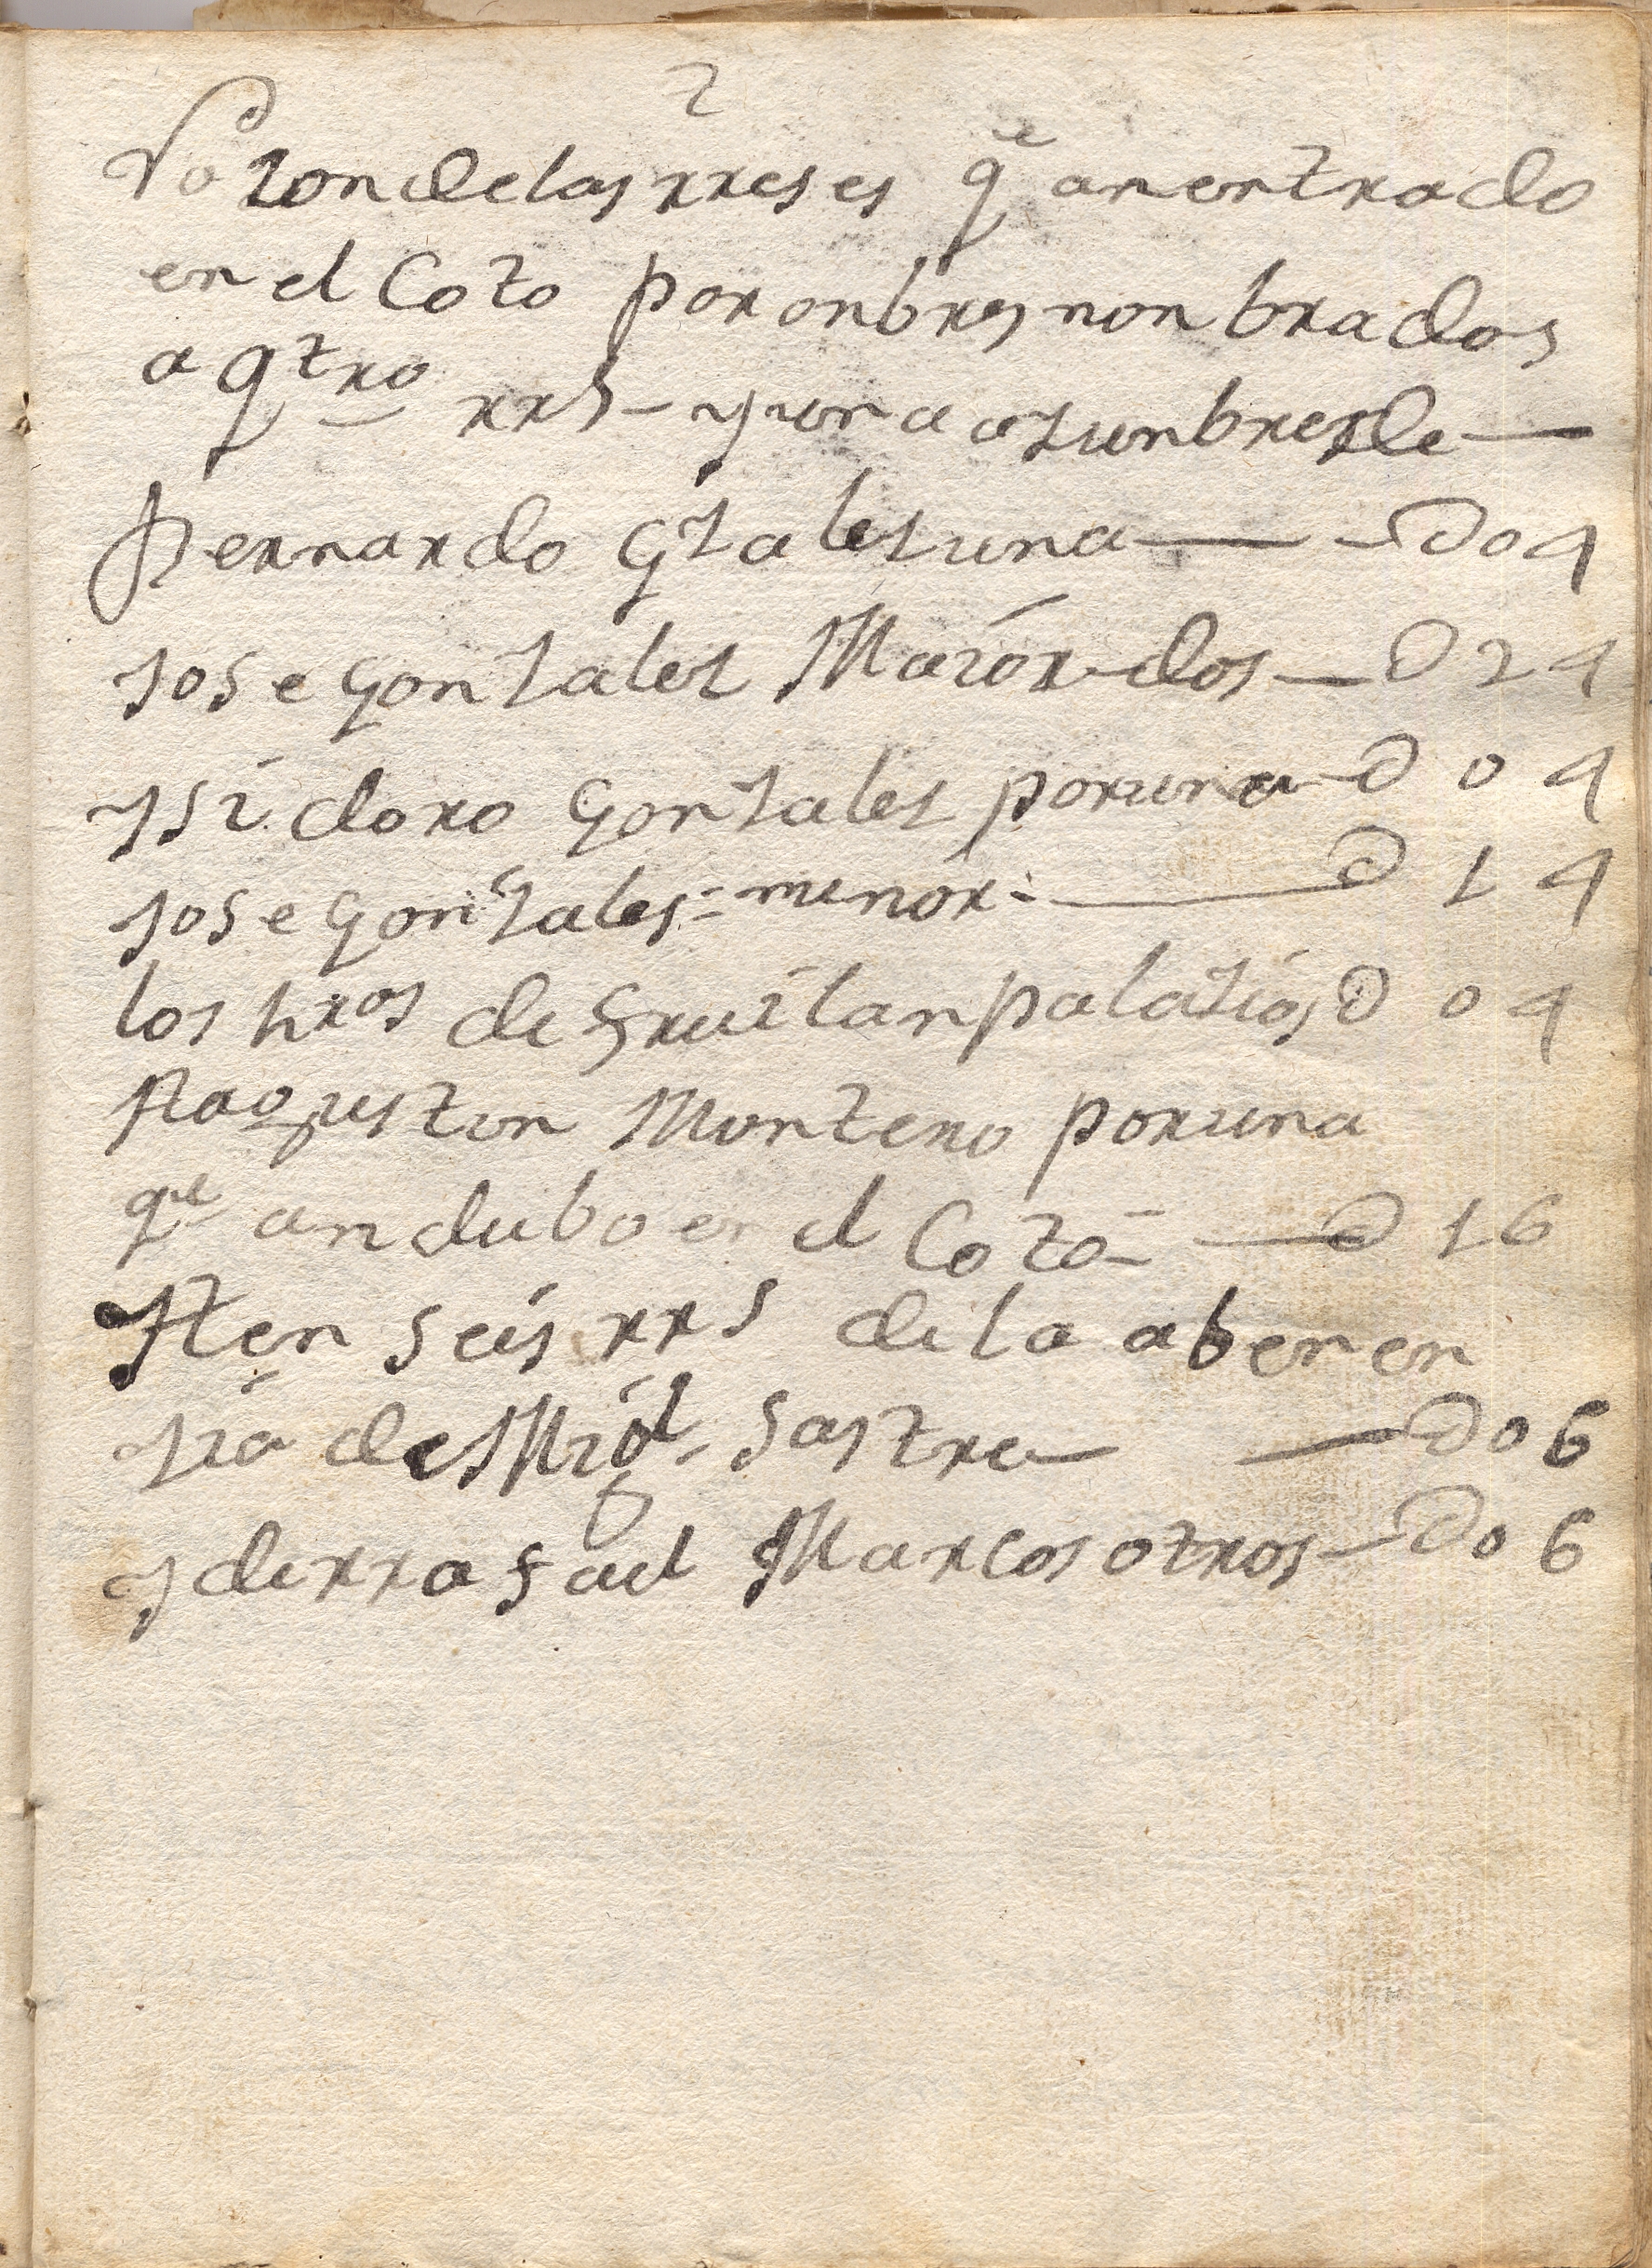 2
Razon de las rreses qe an entrado
en el Coto por onbres nonbrados
a qtro rrs - y una asunbre de
Bernardo Gzales una 04
Jose Gonzales Maior dos 24
Ysidoro Gonzales por una 0 4
Jose Gonzales menor 1 4
los hros de Fruilan palazios 0 4
Y agustin Montero por una
qe andubo en el Coto 16
Yten seis rrs de la abenen
zia de Migl Sastre 06
y de rrafael Marcos otros 06